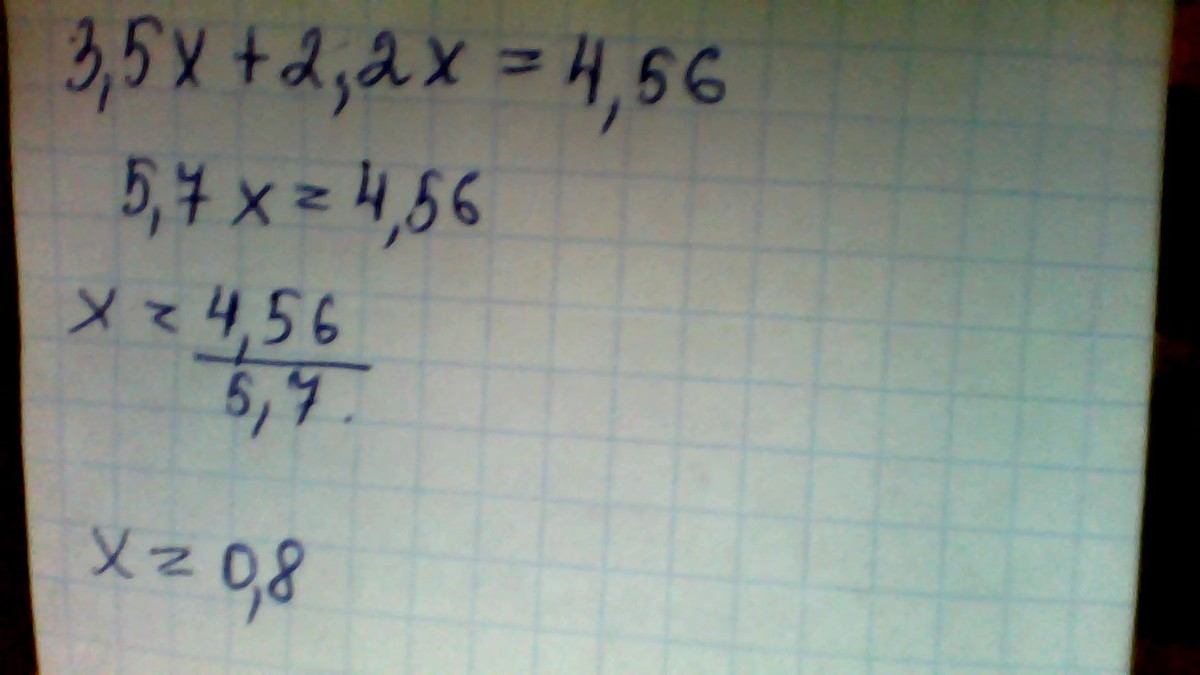 3,5x + 2,2x = 4,56
5,7x = 4,56
x = 4,56
5,7
x = 0,8